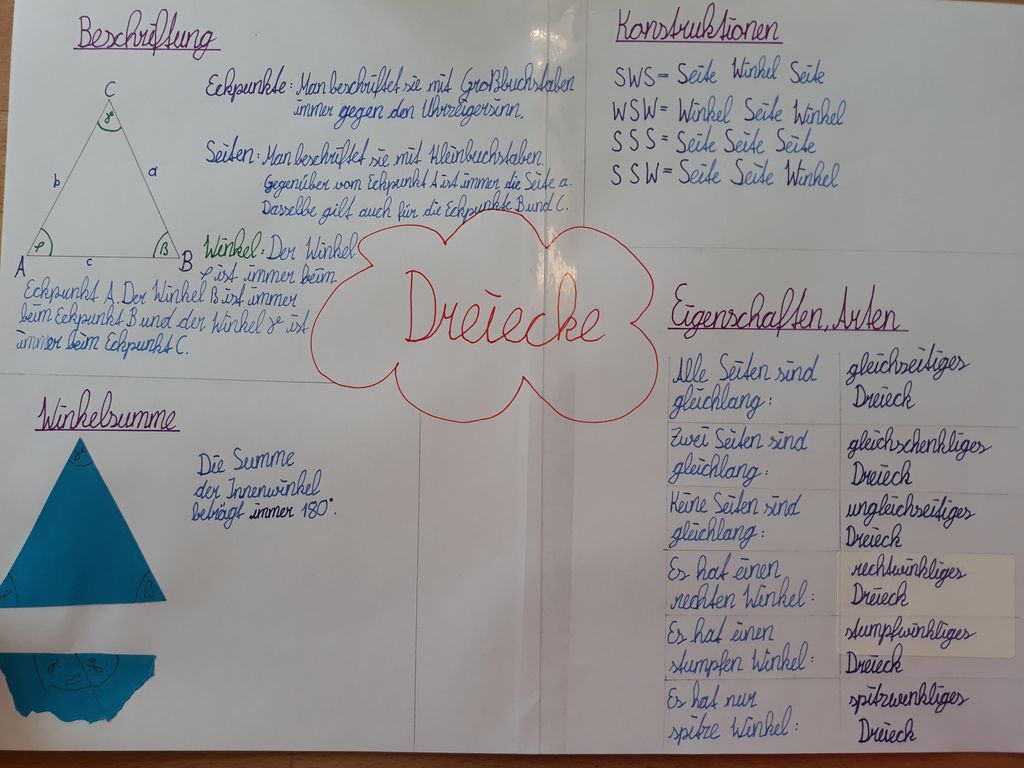 Beschriftung
C
γ
b
a
α
β
A
c
B
Eckpunkte: Man beschriftet sie mit Großbuchstaben
immer gegen den Uhrzeigersinn.
Seiten: Man beschriftet sie mit Kleinbuchstaben.
Gegenüber vom Eckpunkt A ist immer die Seite a.
Dasselbe gilt auch für die Eckpunkte B und C.
Winkel: Der Winkel
α ist immer beim
Eckpunkt A. Der Winkel β ist immer
beim Eckpunkt B und der Winkel γ ist
immer beim Eckpunkt C.
Dreiecke
Konstruktionen
SWS = Seite Winkel Seite
WSW = Winkel Seite Winkel
SSS = Seite Seite Seite
SSW = Seite Seite Winkel
Winkelsumme
γ
α
β
Die Summe
der Innenwinkel
beträgt immer 180°.
α β γ
Eigenschaften, Arten
Alle Seiten sind
gleichlang:
gleichseitiges
Dreieck
Zwei Seiten sind
gleichlang:
gleichschenkliges
Dreieck
Keine Seiten sind
gleichlang:
ungleichseitiges
Dreieck
Es hat einen
rechten Winkel:
rechtwinkliges
Dreieck
Es hat einen
stumpfen Winkel:
stumpfwinkliges
Dreieck
Es hat nur
spitze Winkel:
spitzwenkliges
Dreieck